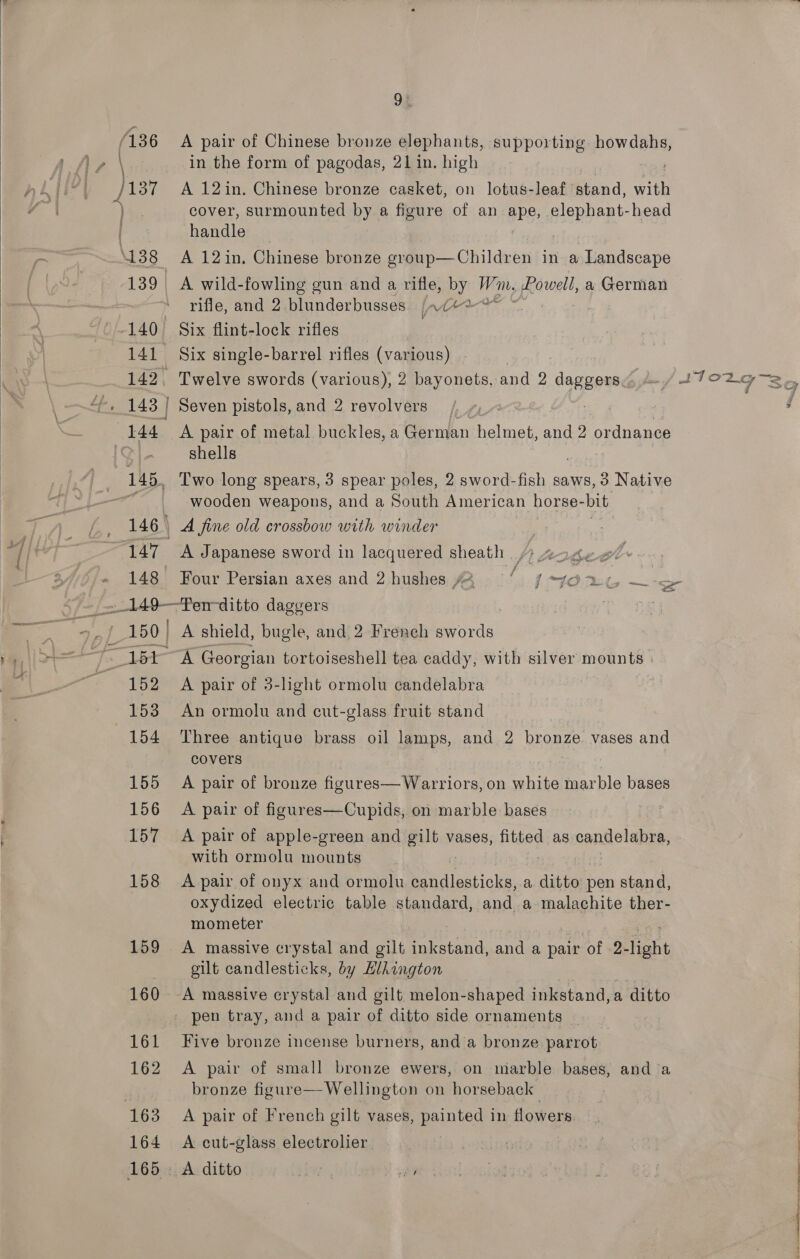 9
136 A pair of Chinese bronze elephants, supporting howdahs,
in the form of pagodas, 21 in. high
137 A 12in. Chinese bronze casket, on lotus-leaf stand, with
cover, surmounted by a figure of an ape, elephant-head
handle
138 A 12in. Chinese bronze group—Children in a Landscape
139 A wild-fowling gun and a rifle, by Wm. Powell, a German
rifle, and 2 blunderbusses
140 Six flint-lock rifles
141 Six single-barrel rifles (various)
142 Twelve swords (various), 2 bayonets, and 2 daggers
143 Seven pistols, and 2 revolvers
144 A pair of metal buckles, a German helmet, and 2 ordnance
shells
145 Two long spears, 3 spear poles, 2 sword-fish saws, 3 Native
wooden weapons, and a South American horse-bit
146 A fine old crossbow with winder
147 A Japanese sword in lacquered sheath
148 Four Persian axes and 2 hushes
149 Ten ditto daggers
150 A shield, bugle, and 2 French swords
151 A Georgian tortoiseshell tea caddy, with silver mounts
152 A pair of 3-light ormolu candelabra
153 An ormolu and cut-glass fruit stand
154 Three antique brass oil lamps, and 2 bronze vases and
covers
155 A pair of bronze figures—Warriors, on white marble bases
156 A pair of figures—Cupids, on marble bases
157 A pair of apple-green and gilt vases, fitted as candelabra,
with ormolu mounts
158 A pair of onyx and ormolu candlesticks, a ditto pen stand,
oxydized electric table standard, and a malachite ther-
mometer
159 A massive crystal and gilt inkstand, and a pair of 2-light
gilt candlesticks, by Elkington
160 A massive crystal and gilt melon-shaped inkstand, a ditto
pen tray, and a pair of ditto side ornaments
161 Five bronze incense burners, and a bronze parrot
162 A pair of small bronze ewers, on marble bases, and a
bronze figure—Wellington on horseback
163 A pair of French gilt vases, painted in flowers
164 A cut-glass electrolier
165 A ditto